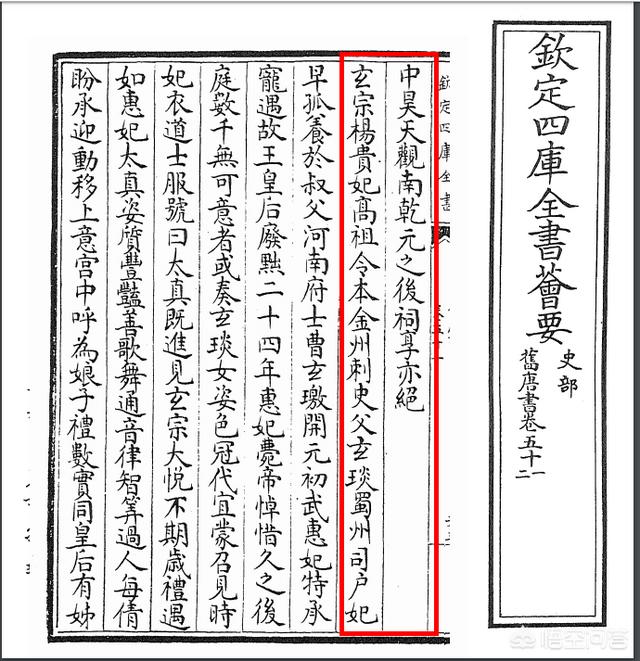 欽定四庫全書薈要
史部
舊唐書卷五十一
二
欽定四庫全書
中昊天觀南乾元之後祠享亦絕
玄宗楊貴妃高祖令本金州刺史父玄琰蜀州司户妃
早孤養於叔父河南府士曹玄璬開元初武惠妃特承
寵遇故王皇后廢黜二十四年惠妃薨帝悼惜久之後
庭數千無可意者或奏玄琰女姿色冠代宜蒙召見時
妃衣道士服號曰太真既進見玄宗大悦不期歲禮遇
如惠妃太真姿質豐豔善歌舞通音律智筭過人每倩
盼承迎動移上意宫中呼為娘子禮數實同皇后有姊
悟空问答